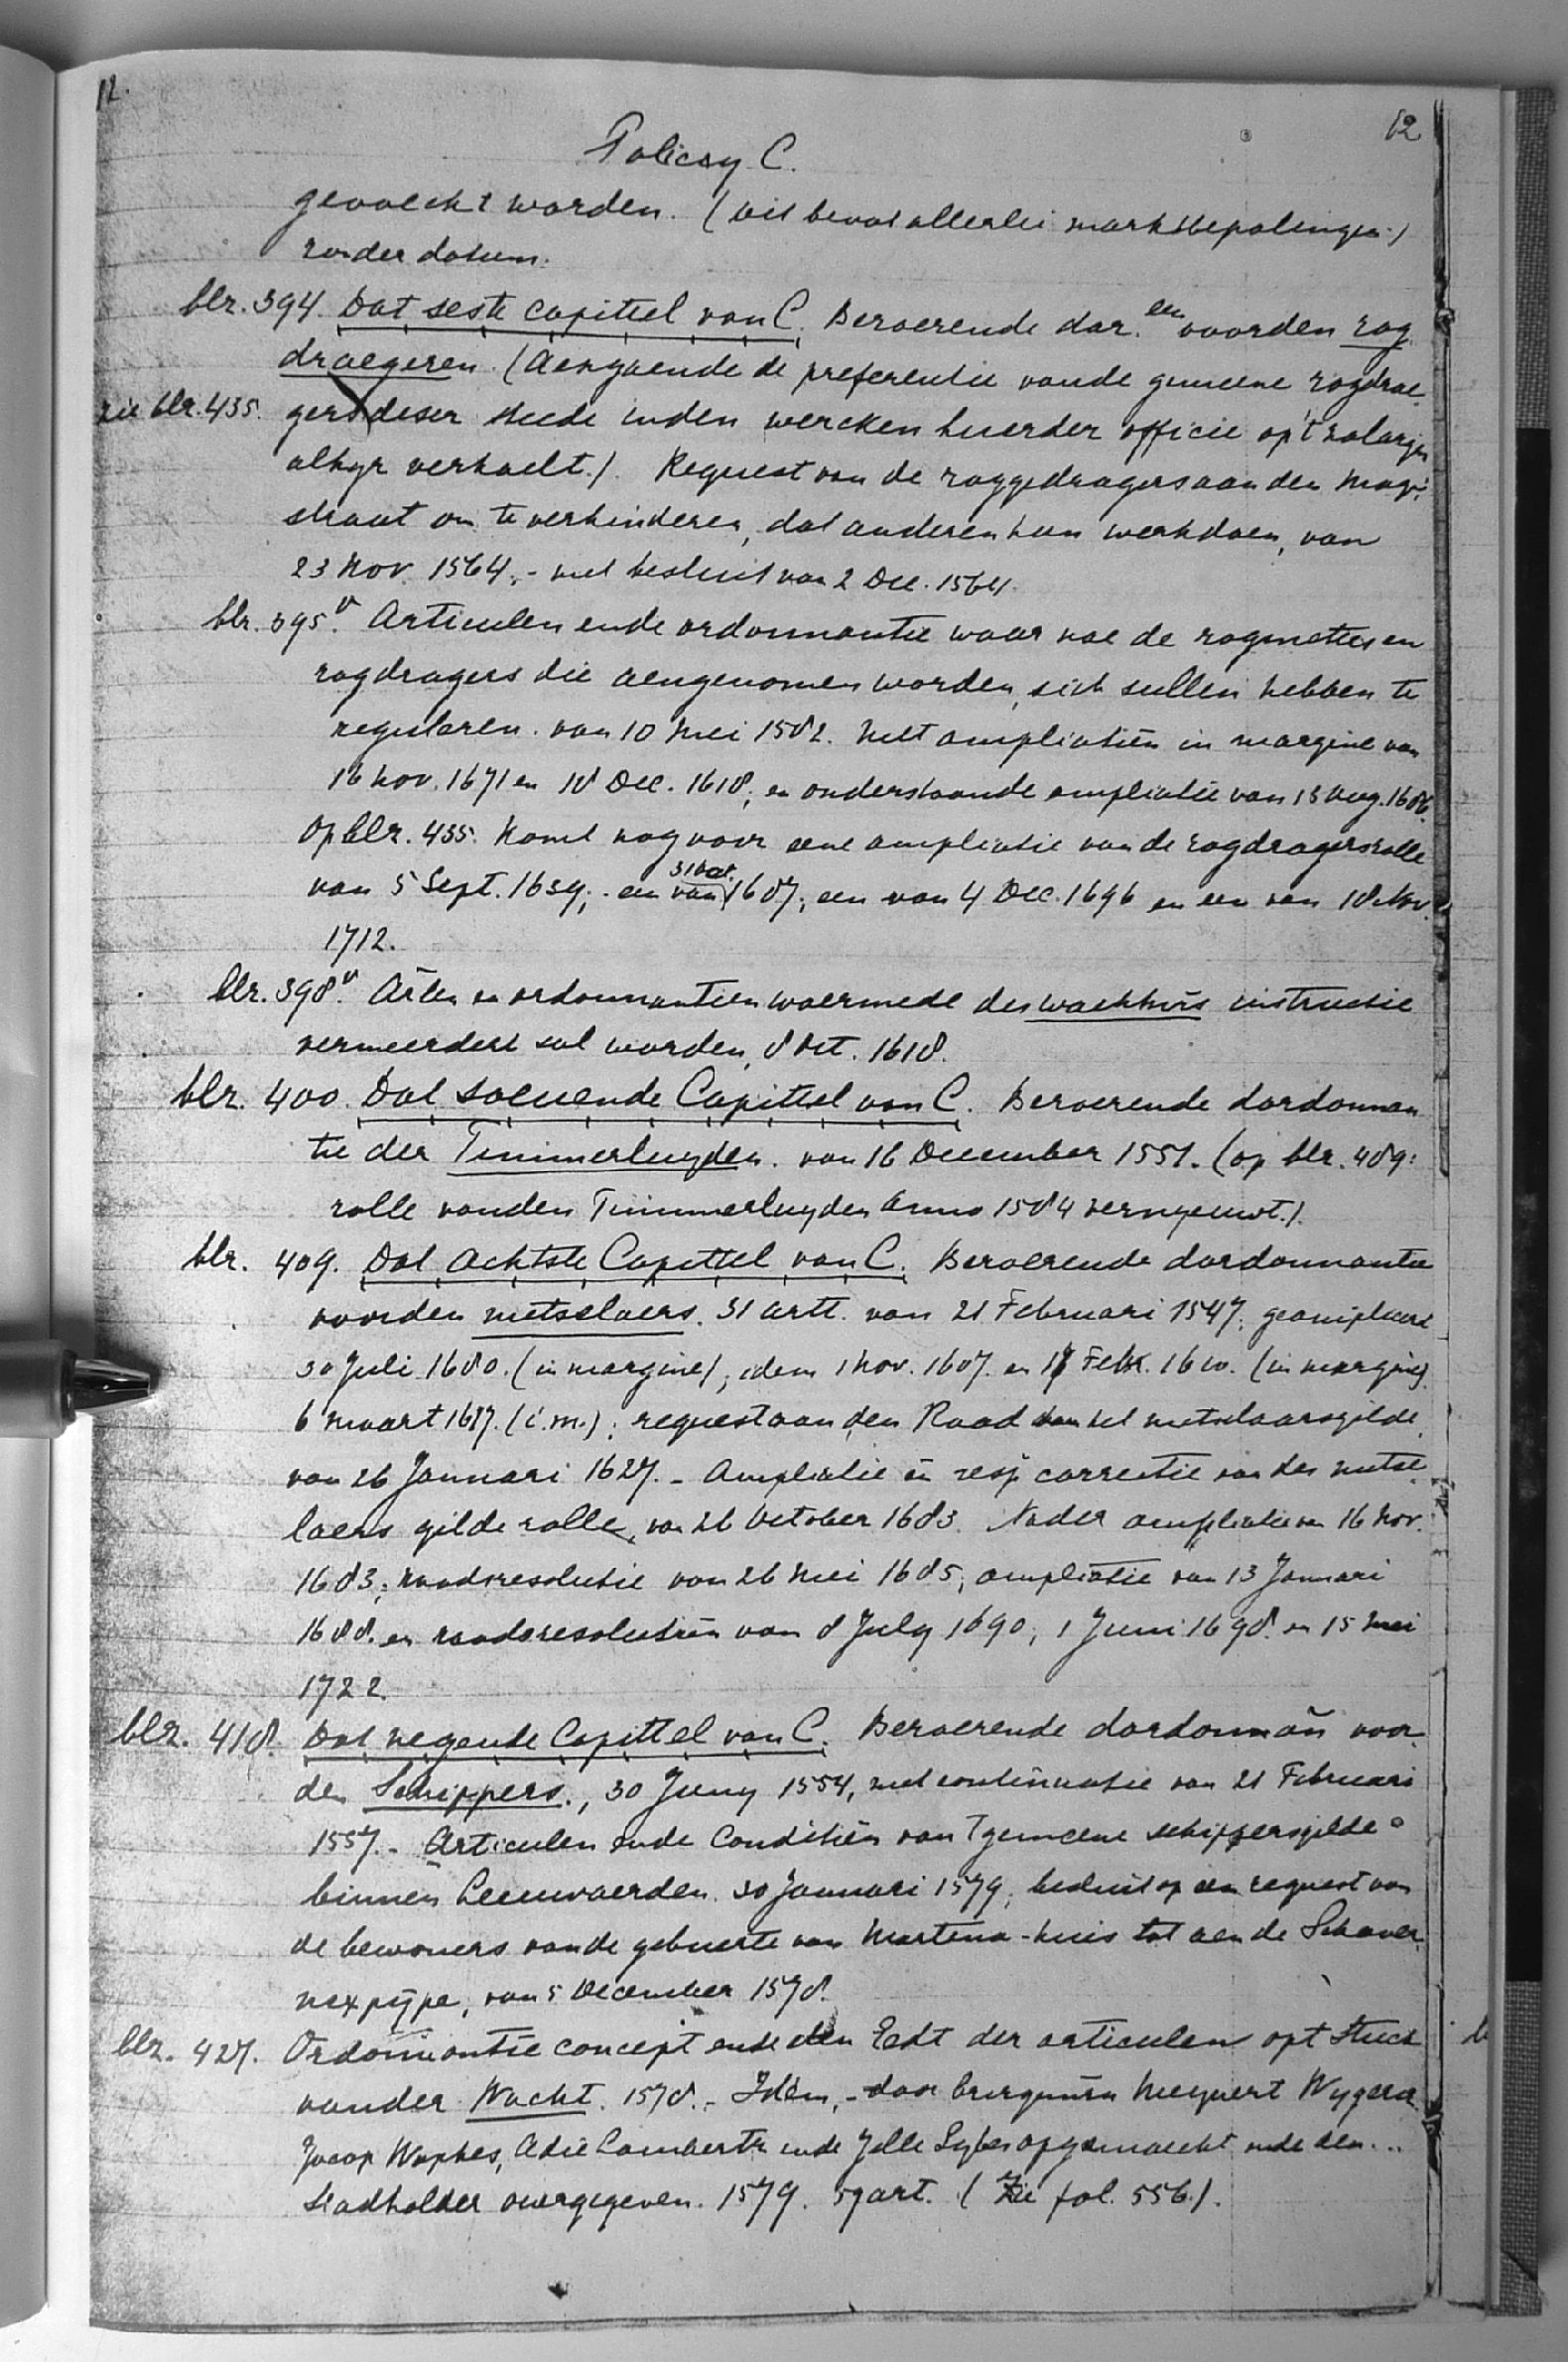 12.
12
Policey C.
gevoecht worden. (uit bevat allerlei marktbepalingen.)
zonder datum.
blz. 394. Dat seste capittel van C. Beroerende dor. en voorden zag
draegeren. (Aengaende de preferentie vande gemeene zagdrae
zie blz. 435. gers deser stede inden wercken huerder officie op't
alhyr verhaelt.). Request van de zaggedragers aan den Magi-
straat om te verhinderen, dat anderen hun werk doen, van
23 Nov. 1564, - met besluit van 2 Dec. 1564.
blz. 395v. Articulen ende ordonnantie waar nae de zagmeters en
zagdragers die aengenomen worden, sich sullen hebben te
reguleren. van 10 Mei 1582. Met ampliatiën in margine van
16 Nov. 1671 en 18 Dec. 1618; en onderstaande ampliatie van 13 Aug. 1686.
Op blz. 435. komt nog voor eene ampliatie van de zagdragersrolle
van 5 Sept. 1639; - een van 31 Oct. 1687; een van 4 Dec. 1696 en een van 18 Nov.
1712.
blz. 398v. Arlen en ordonnantien waermede des wachthuis instructie
vermeerdert sal worden, 8 Oct. 1618.
blz. 400. Dat soevende Capittel van C. Beroerende dordonnan
tie der Timmerluyden. van 16 December 1551. (op blz. 489:
rolle vanden Timmerluyden Anno 1584 vernyeuwt.).
blz. 409. Dat Achtste Capittel van C. Beroerende dordonnantie
voorden metselaers. 31 artt. van 21 Februari 1547; geamplieerd
30 Juli 1680. (in margine), idem 1 Nov. 1607. en 17 Febr. 1610. (in margine)
6 Maart 1617. (i.m.); request aan den Raad van het metselaarsgilde
van 26 Januari 1627. - Ampliatie en resp. correctie van der metse
laers gilde rolle, van 26 October 1683. Nader ampliatie van 16 Nov.
1683; Raadsresolutie van 26 Mei 1685; ampliatie van 13 Januari
1688. en raadsresolutiën van 8 July 1690, 1 Juni 1698. en 15 Mei
1722.
blz. 418. Dat negende Capittel van C. Beroerende dordonnān voor
den Schippers., 30 Juny 1554, met continuatie van 21 Februari
1557. - Articulen ende Conditiën van Tgemeene schippersgilde
binnen Leeuwaerden. 30 Januari 1579; besluit op een request van
de bewoners vande gebuerte van Martena-huis tot aen de Schaver
nex pype, van 5 December 1578.
blz. 427. Ordonnantie concept ende den Eedt der articulen opt stuck
vander Wacht. 1578. - Idem, - door burgemrn Meynert Wygers
Jacop Wopkes, Adie Lamberts ende Jelle Sybes opgemaeckt ende den...
Stadholder overgegeven. 1579. 59 art. (Zie fol. 556.).